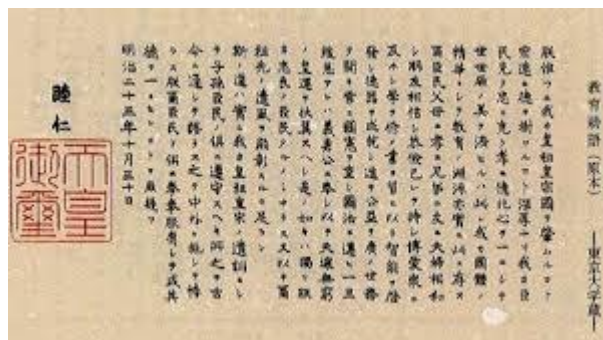 教育勅語(原本) ―東京大学蔵―
朕惟フニ我カ皇祖皇宗國ヲ肇ムルコト
宏遠ニ德ヲ樹ツルコト深厚ナリ我カ臣
民克ク忠ニ克ク孝ニ億兆心ヲ一ニシテ
世世厥ノ美ヲ濟セルハ此レ我カ國體ノ
精華ニシテ敎育ノ淵源亦實ニ此ニ存ス
爾臣民父母ニ孝ニ兄弟ニ友ニ夫婦相和
シ朋友相信シ恭儉己レヲ持シ博愛衆ニ
及ホシ學ヲ修メ業ヲ習ヒ以テ智能ヲ啓
發シ德器ヲ成就シ進テ公益ヲ廣メ世務
ヲ開キ常ニ國憲ヲ重シ國法ニ遵ヒ一旦
緩急アレハ義勇公ニ奉シ以テ天壤無窮
ノ皇運ヲ扶翼スヘシ是ノ如キハ獨リ朕
カ忠良ノ臣民タルノミナラス又以テ爾
祖先ノ遺風ヲ顯彰スルニ足ラン
斯ノ道ハ實ニ我カ皇祖皇宗ノ遺訓ニシ
テ子孫臣民ノ俱ニ遵守スヘキ所之ヲ古
今ニ通シテ謬ラス之ヲ中外ニ施シテ悖
ラス朕爾臣民ト俱ニ拳拳服膺シテ咸其
德ヲ一ニセンコトヲ庶幾フ
明治二十三年十月三十日
睦仁
天皇
御璽